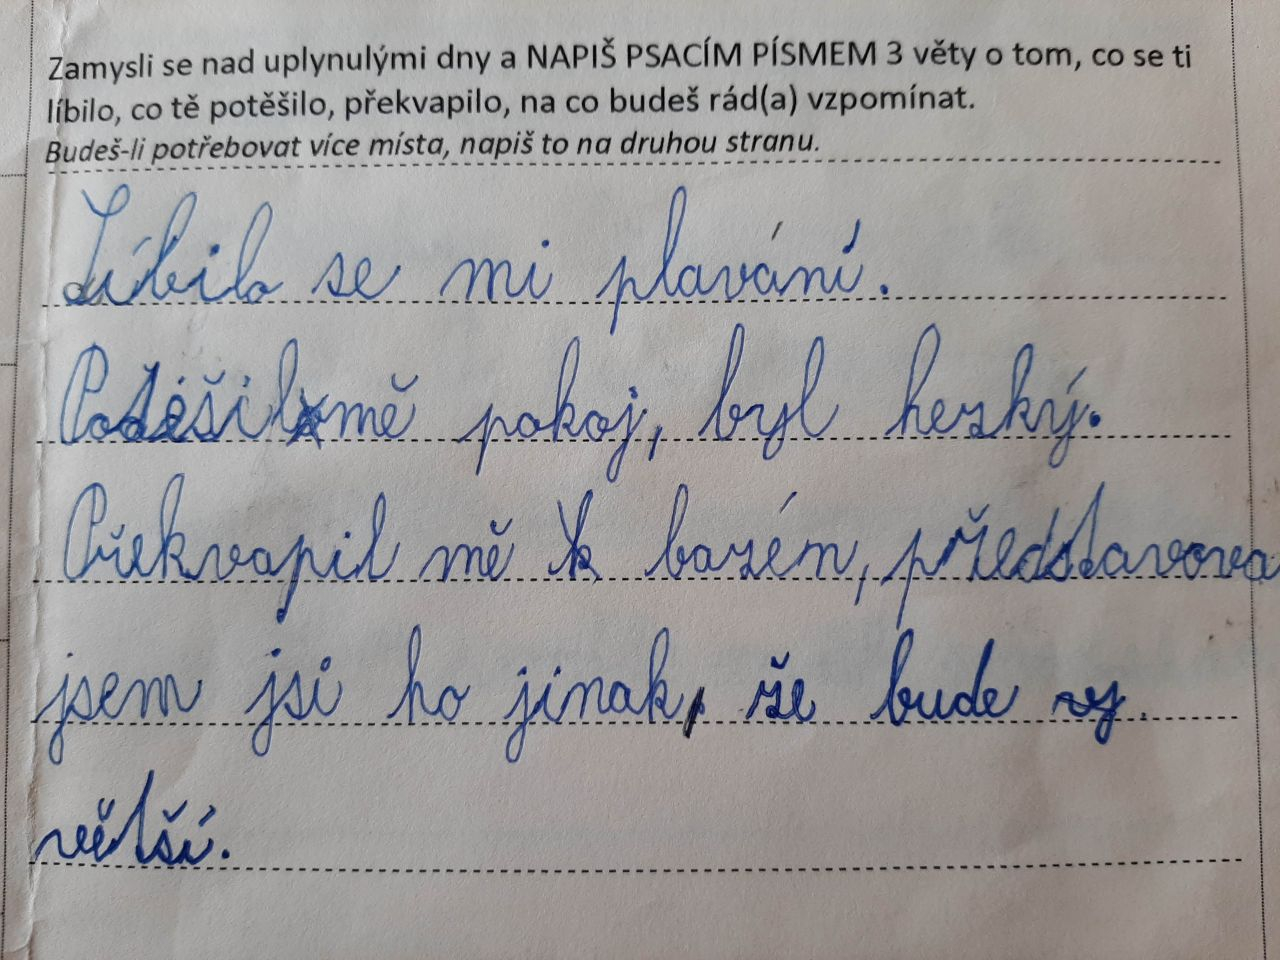 Zamysli se nad uplynulými dny a NAPIŠ PSACÍM PÍSMEM 3 věty o tom, co se ti
líbilo, co tě potěšilo, překvapilo, na co budeš rád(a) vzpomínat.
Budeš-li potřebovat více místa, napiš to na druhou stranu.
Líbilo se mi plavání.
Potěšil mě pokoj, byl hezký.
Překvapil mě bazén, představova
jsem jsi ho jinak, že bude
větší.